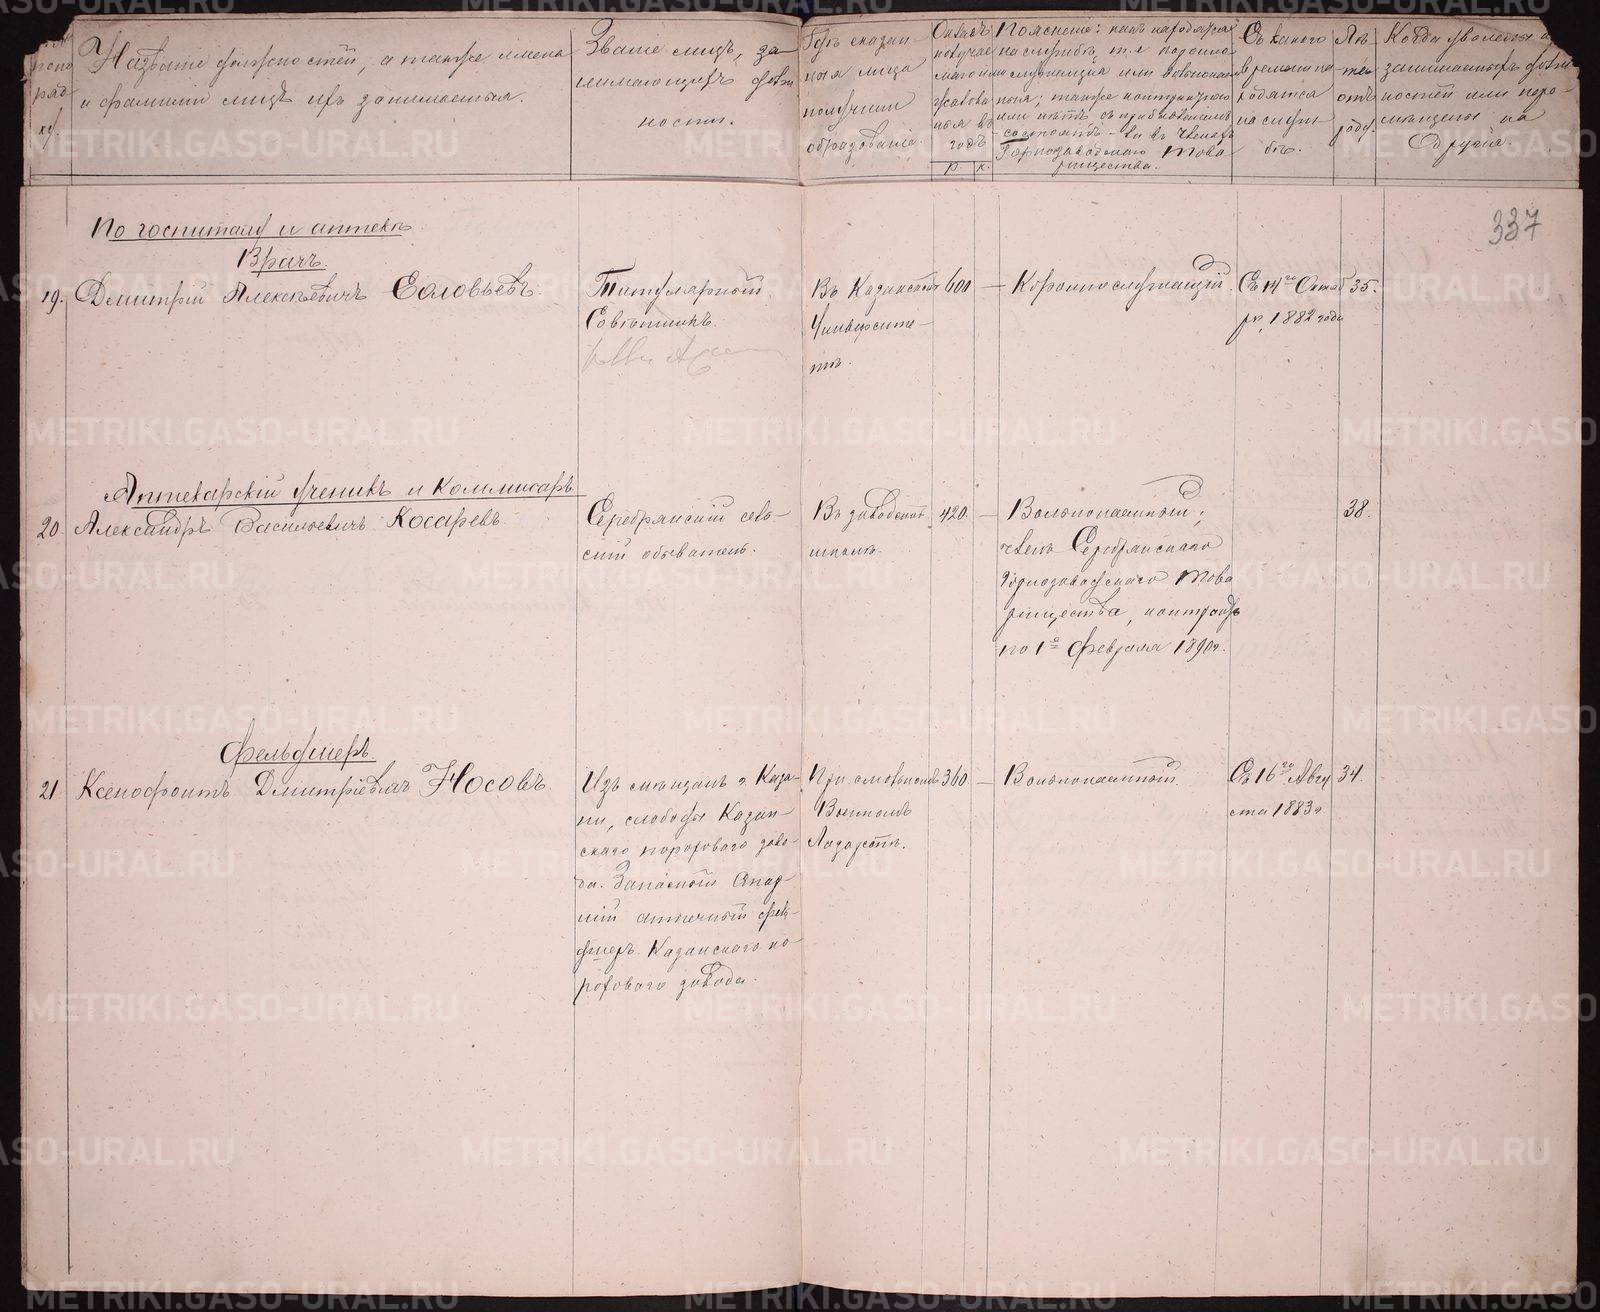 Названіе должностей, а также имена
и фамиліи лицъ ихъ занимаемыя.
Званіе лицъ, за
нимающихъ долж
ности.
Гдѣ сказан
ныя лица
получили
образованіе.
Окладъ
получае
маго
жалова
нья въ
годъ
р. к.
Поясненіе: какъ находятся
на службѣ, т.е. коронно
служащій или вольнонаем
ныя; также контрактъ
состоитъ-ли въ членахъ
Горнозаводскаго Това
рищества.
Съ какого
времени на
ходятся
на служ
бѣ.
Лѣ
та
отъ
роду.
Когда уволены отъ
занимаемыхъ долж
ностей или пере
мѣщены на
другія.
337
По госпиталю и аптекѣ
Врачъ.
19. Дмитрій Алексѣевичъ Соловьевъ.
Титулярный
Совѣтникъ.
Въ Казанскомъ
Университе-
тѣ.
600 —
Короннослужащій.
Съ 14го Октяб
ря 1882 года
35.
Аптекарскій ученикъ и Коммисаръ
20. Александръ Васильевичъ Косаревъ.
Серебрянскій сель-
скій обыватель.
Въ заводской
школѣ.
420. —
Вольнонаемный;
членъ Серебрянскаго
Горнозаводскаго Това
рищества, контрактъ
по 1е Февраля 1890г.
38.
Фельдшеръ.
21. Ксенофонтъ Дмитріевичъ Носовъ.
Изъ мѣщанъ г. Каза-
ни, слободы Казан-
скаго пороховаго заво-
да. Запасный млад-
шій аптечный фель-
дшеръ Казанскаго по
роховаго завода.
При
Военномъ
Лазаретѣ.
360 —
Вольнонаемный.
Съ 16го Авгу
ста 1883г
34.
METRIKI.GASO-URAL.RU